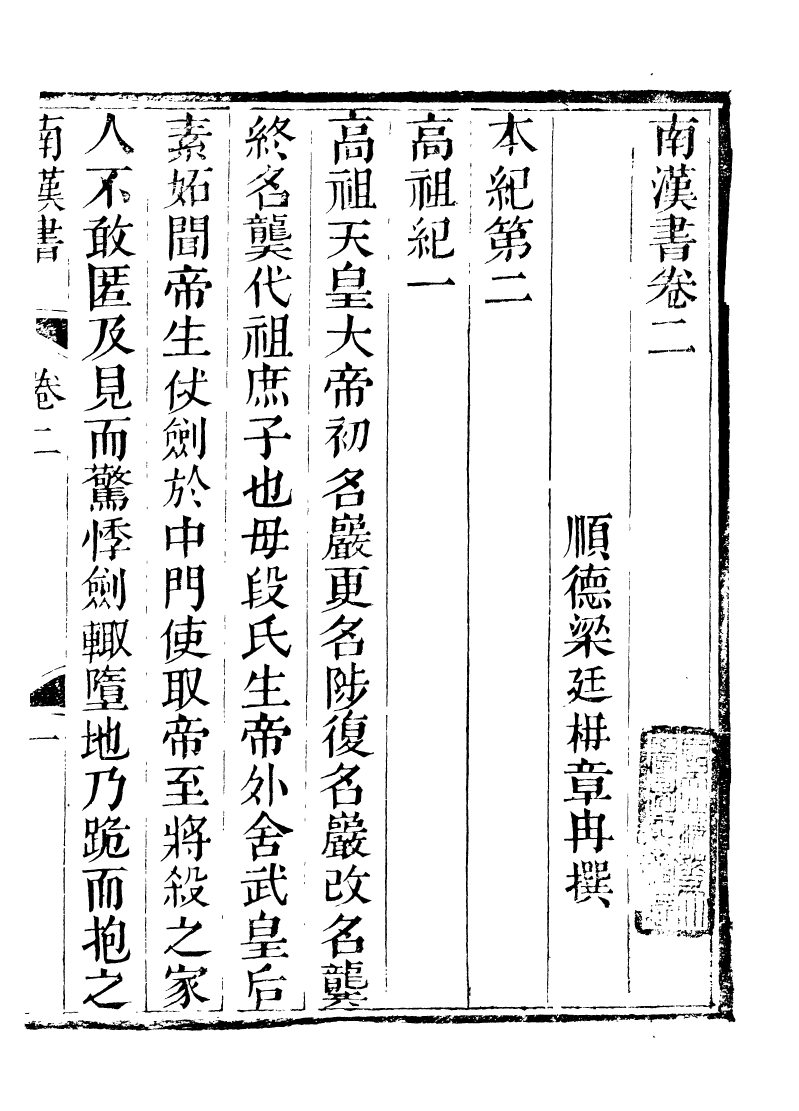 南漢書卷二
順德梁廷枏章冉撰
本紀第二
高祖紀一
高祖天皇大帝初名巖更名陟復名巖改名龔
終名龑代祖庶子也母段氏生帝外舍武皇后
素妬聞帝生仗劍於中門使取帝至將殺之家
人不敢匿及見而驚悸劍輙墮地乃跪而抱之
南漢書 卷二 一